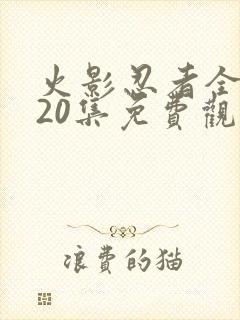 火影忍者全
20集免費觀
浪費的猫